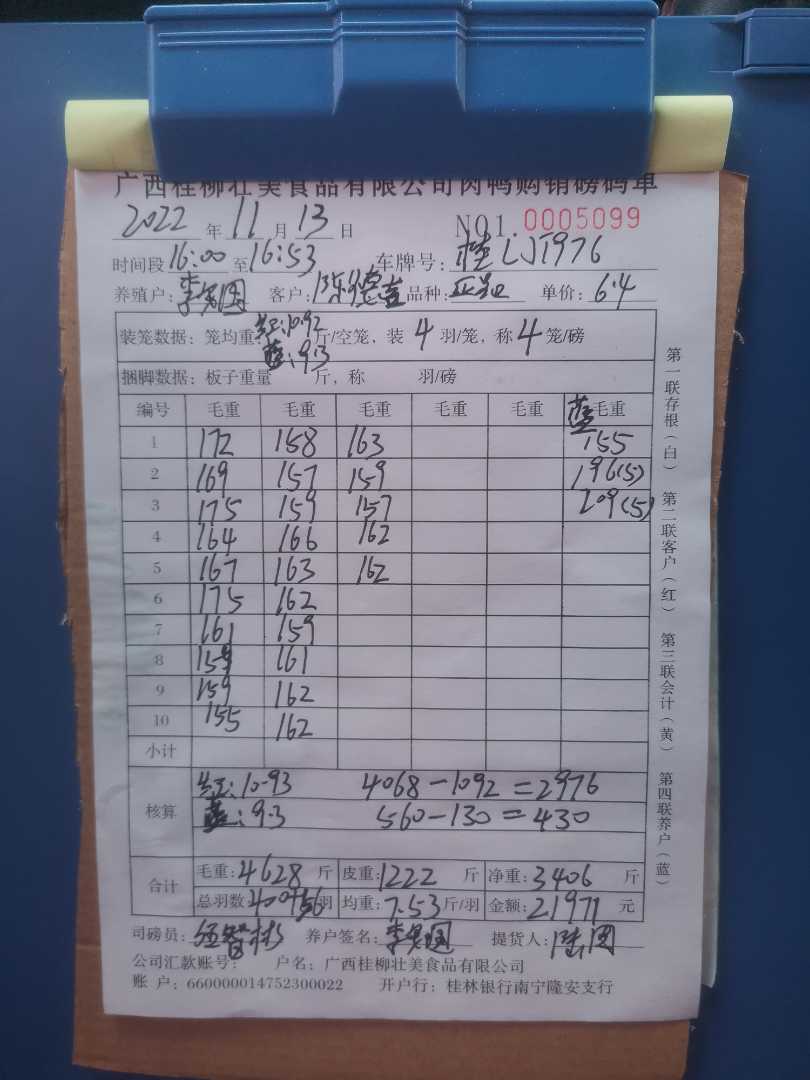 广西桂柳壮美食品有限公司肉鸭购销磅码单
2022 年 11 月 13 日 NO1. 0005099
时间段 16:00 至 16:53 车牌号: 桂LJT976
养殖户: 李 国 客户: 陈 品种: 单价: 6.4
装笼数据: 笼均重: 红:10.92 斤/空笼, 装 4 羽/笼, 称 4 笼/磅
蓝:9.3
捆脚数据: 板子重量 斤, 称 羽/磅
编号 毛重 毛重 毛重 毛重 毛重 蓝 毛重
1 172 158 163 155
2 169 157 159 196(5)
3 175 159 157 209(5)
4 164 166 162
5 167 163 162
6 175 162
7 161 159
8 161
9 159 162
10 155 162
小计
核算 红:10.93 4068-1092=2976
蓝:9.3 560-130=430
合计 毛重: 4628 斤 皮重: 1222 斤 净重: 3406 斤
总羽数 400+56 羽 均重: 7.53 斤/羽 金额: 21971 元
司磅员: 伍智彬 养户签名: 李 国 提货人: 陆团
公司汇款账号: 户名: 广西桂柳壮美食品有限公司
账 户: 660000014752300022 开户行: 桂林银行南宁隆安支行
第一联存根(白) 第二联客户(红) 第三联会计(黄) 第四联养户(蓝)